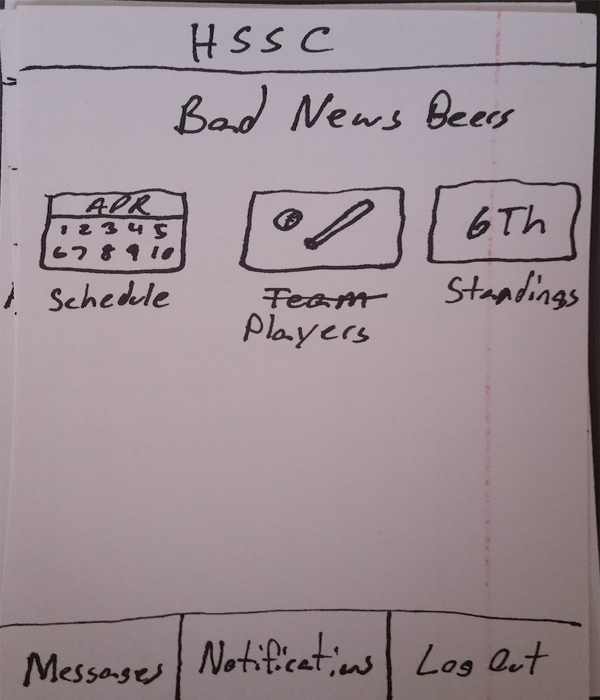 HSSC
Bad News Beers
APR
1 2 3 4 5
6 7 8 9 10
6Th
Schedule
Team
Standings
Players
Messages
Notifications
Log Out